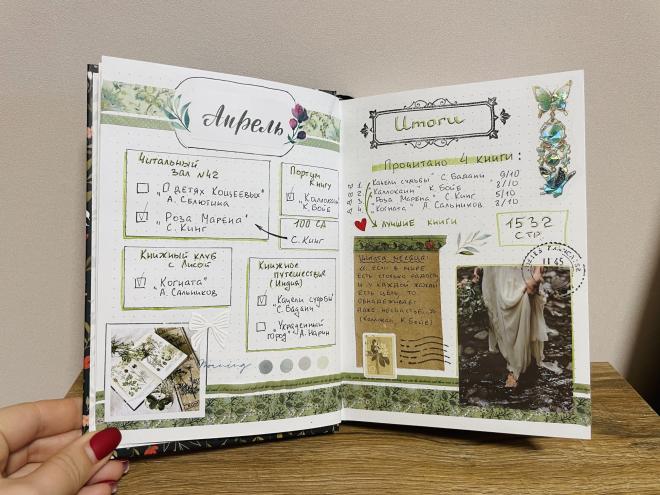 Апрель
Читальный
зал №42
"О детях Кощеевых"
А. Селютина
"Роза Марена"
С. Кинг
Портум
Книгу
"Каллокаин"
К. Бойе
100 СД
С. Кинг
Книжный клуб
с Лисой
"Когната"
А. Сальников
Книжное
путешествие
(Индия)
"Качели судьбы"
С. Бадани
"Украденный
город" А. Нарин
Итоги
Прочитано 4 книги:
1. "Качели судьбы" С. Бадани 9/10
2. "Каллокаин" К. Бойе 8/10
3. "Роза Марена" С. Кинг 5/10
4. "Когната" А. Сальников 8/10
лучшие книги
1532
стр.
Цитата месяца:
если в мире
есть столько радости
и у каждой
есть цель, то
обнадеживает
даже
(Каллокаин, К. Бойе)
11 45